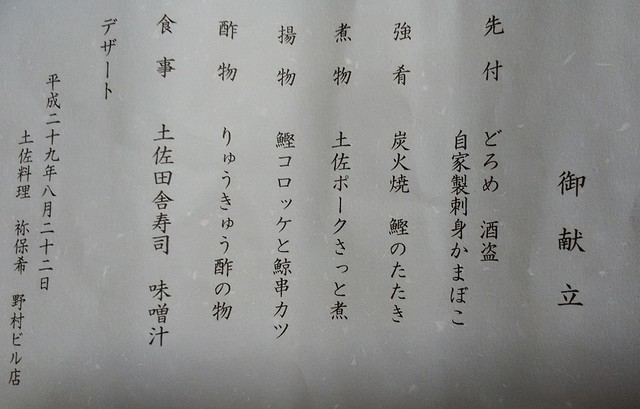 御献立
先付　どろめ　酒盗
自家製刺身かまぼこ
強肴　炭火焼　鰹のたたき
煮物　土佐ポークさっと煮
揚物　鰹コロッケと鯨串カツ
酢物　りゅうきゅう酢の物
食事　土佐田舎寿司　味噌汁
デザート
平成二十九年八月二十二日
土佐料理　祢保希　野村ビル店